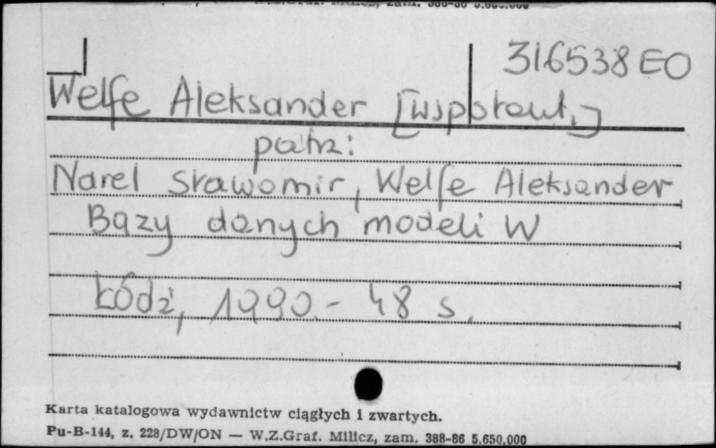 316538 EO
Welfe Aleksander [współaut.]
patrz:
Narel Sławomir, Welfe Aleksander
Bazy danych modeli W
Łódź, 1990.- 48 s.
Karta katalogowa wydawnictw ciągłych i zwartych.
Pu-B-144, z. 228/DW/ON — W.Z.Graf. Milicz, zam. 388-86 5.650.000